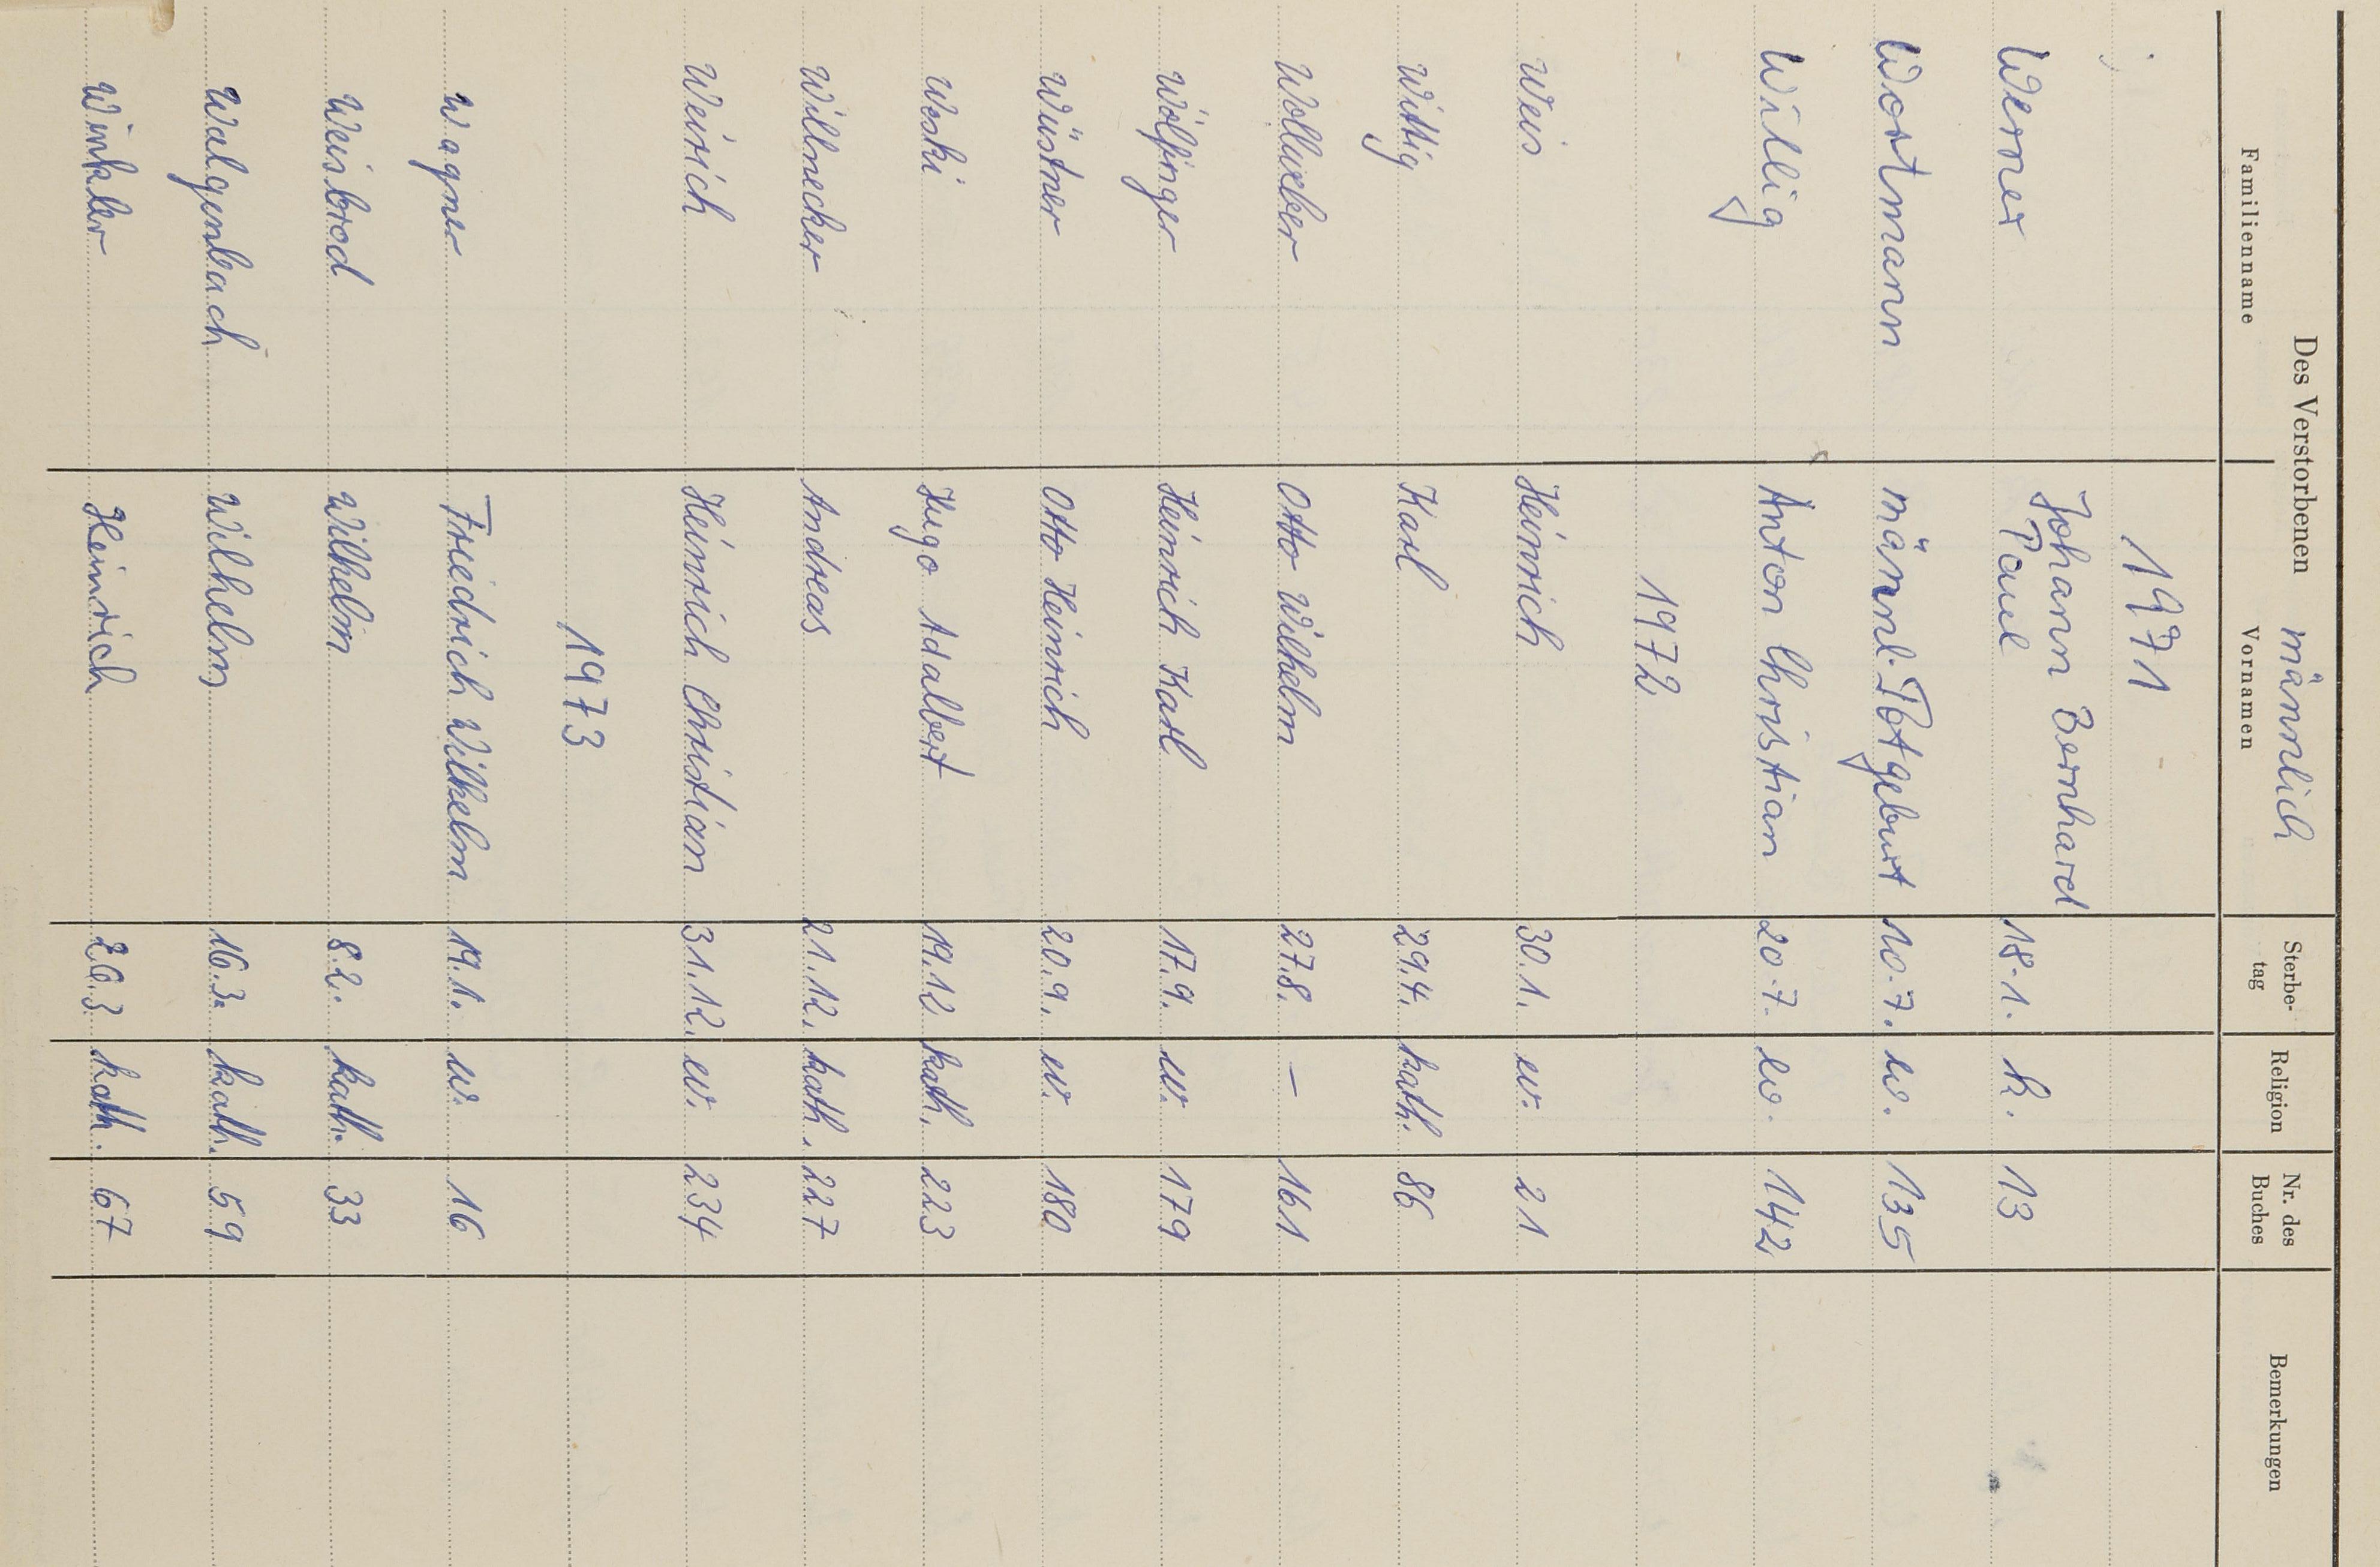 Des Verstorbenen männlich
Familienname Vornamen Sterbe- tag Religion Nr. des Buches Bemerkungen
1971
Werner Johann Bernhard Paul 18.1. k. 13
Wortmann männl. Totgeburt 10.7. ev. 135
Willig Anton Christian 20.7. ev. 142
1972
Weis Heinrich 30.1. ev. 21
Wittig Karl 29.4. kath. 86
Otto Wilhelm 27.8. – 161
Wölfinger Heinrich Karl 17.9. ev. 179
Wüstner Otto Heinrich 20.9. ev. 180
Woski Hugo Adalbert 19.12. kath. 223
Willnecker Andreas 21.12. kath. 227
Weirich Heinrich Christian 31.12. ev. 234
1973
Wagner Friedrich Wilhelm 19.1. ev. 16
Weisbrod Wilhelm 8.2. kath. 33
Walgenbach Wilhelm 16.3. kath. 59
Winkler Heinrich 26.3. kath. 67